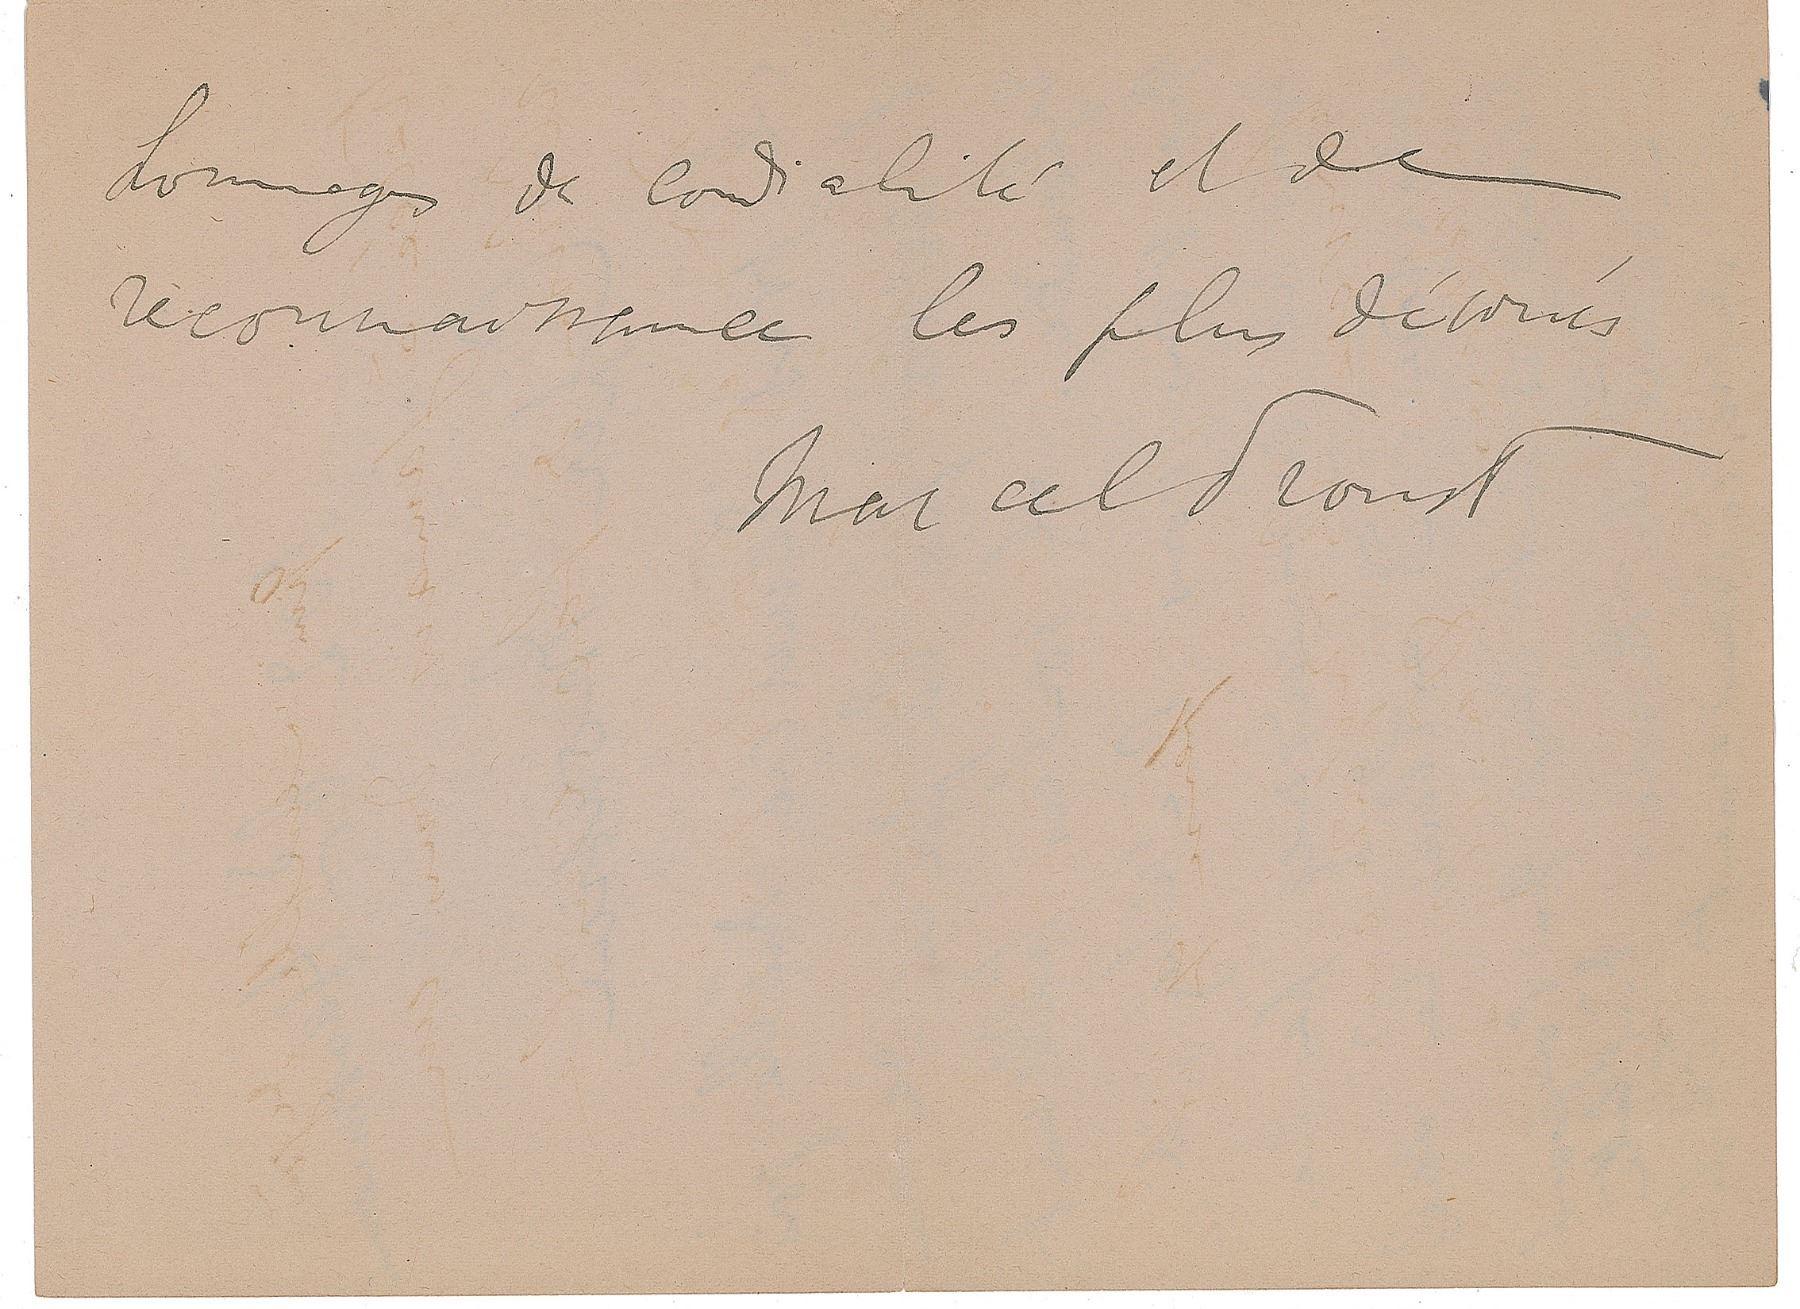 hommages de cordialité et de
reconnaissance les plus dévoués
Marcel Proust